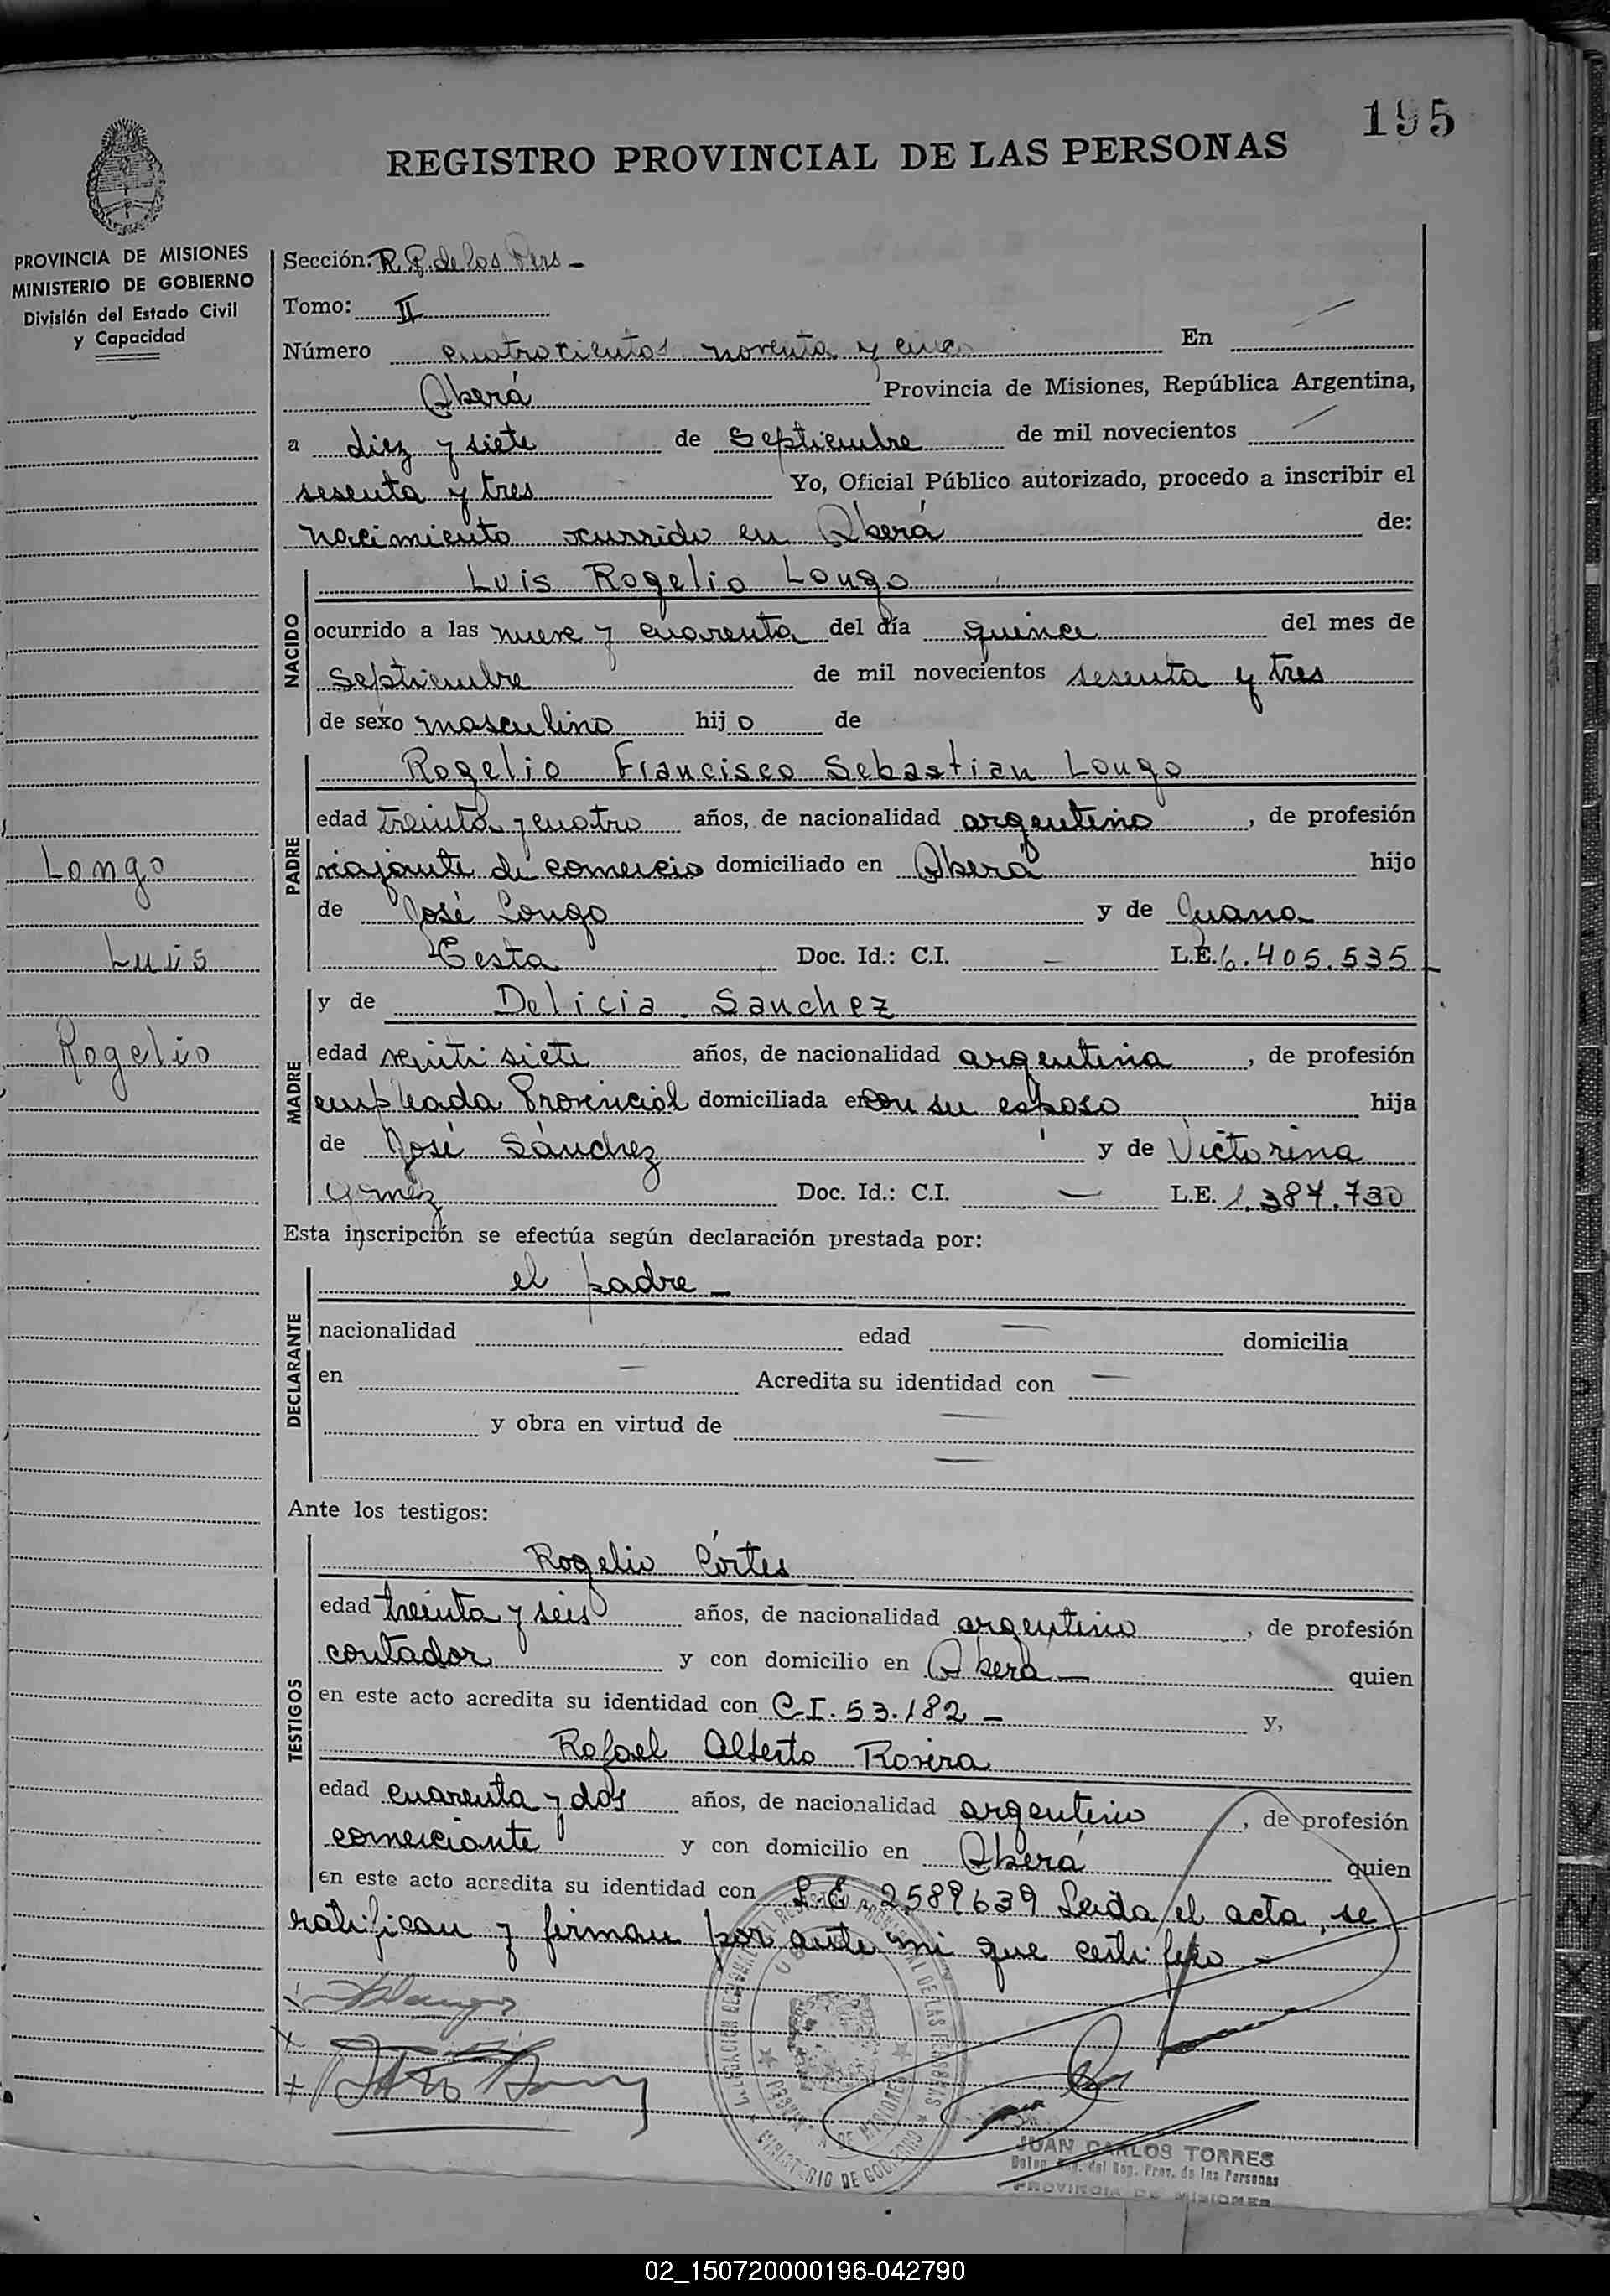 195
REGISTRO PROVINCIAL DE LAS PERSONAS
PROVINCIA DE MISIONES
MINISTERIO DE GOBIERNO
División del Estado Civil
y Capacidad
Longo
Luis
Rogelio
Sección: R. P. de los Pers -
Tomo: II
Número cuatrocientos noventa y cinco En
Oberá Provincia de Misiones, República Argentina,
a diez y siete de Septiembre de mil novecientos
sesenta y tres Yo, Oficial Público autorizado, procedo a inscribir el
nacimiento ocurrido en Oberá de:
NACIDO
Luis Rogelio Longo
ocurrido a las nueve y cuarenta del día quince del mes de
Septiembre de mil novecientos sesenta y tres
de sexo masculino hijo de
PADRE
Rogelio Francisco Sebastian Longo
edad treinta y cuatro años, de nacionalidad argentino, de profesión
viajante de comercio domiciliado en Oberá hijo
de José Longo y de Juana
Testa Doc. Id.: C.I. — L.E. 6.405.535
MADRE
y de Delicia Sanchez
edad veinti siete años, de nacionalidad argentina, de profesión
empleada Provincial domiciliada en con su esposo hija
de José Sánchez y de Victorina
Gomez Doc. Id.: C.I. — L.E. 1.387.730
Esta inscripción se efectúa según declaración prestada por:
DECLARANTE
el padre -
nacionalidad edad — domicilia
en — Acredita su identidad con —
y obra en virtud de —
Ante los testigos:
TESTIGOS
Rogelio Cortes
edad treinta y seis años, de nacionalidad argentino, de profesión
contador y con domicilio en Oberá — quien
en este acto acredita su identidad con C.I. 53.182 - y,
Rafael Alberto Rovira
edad cuarenta y dos años, de nacionalidad argentino, de profesión
comerciante y con domicilio en Oberá quien
en este acto acredita su identidad con L.E. 2589639 Leída el acta, se
ratifican y firman por ante mi que certifico -
MINISTERIO DE GOBIERNO
JUAN CARLOS TORRES
del Reg. Prov. de las Personas
PROVINCIA DE MISIONES
02_150720000196-042790